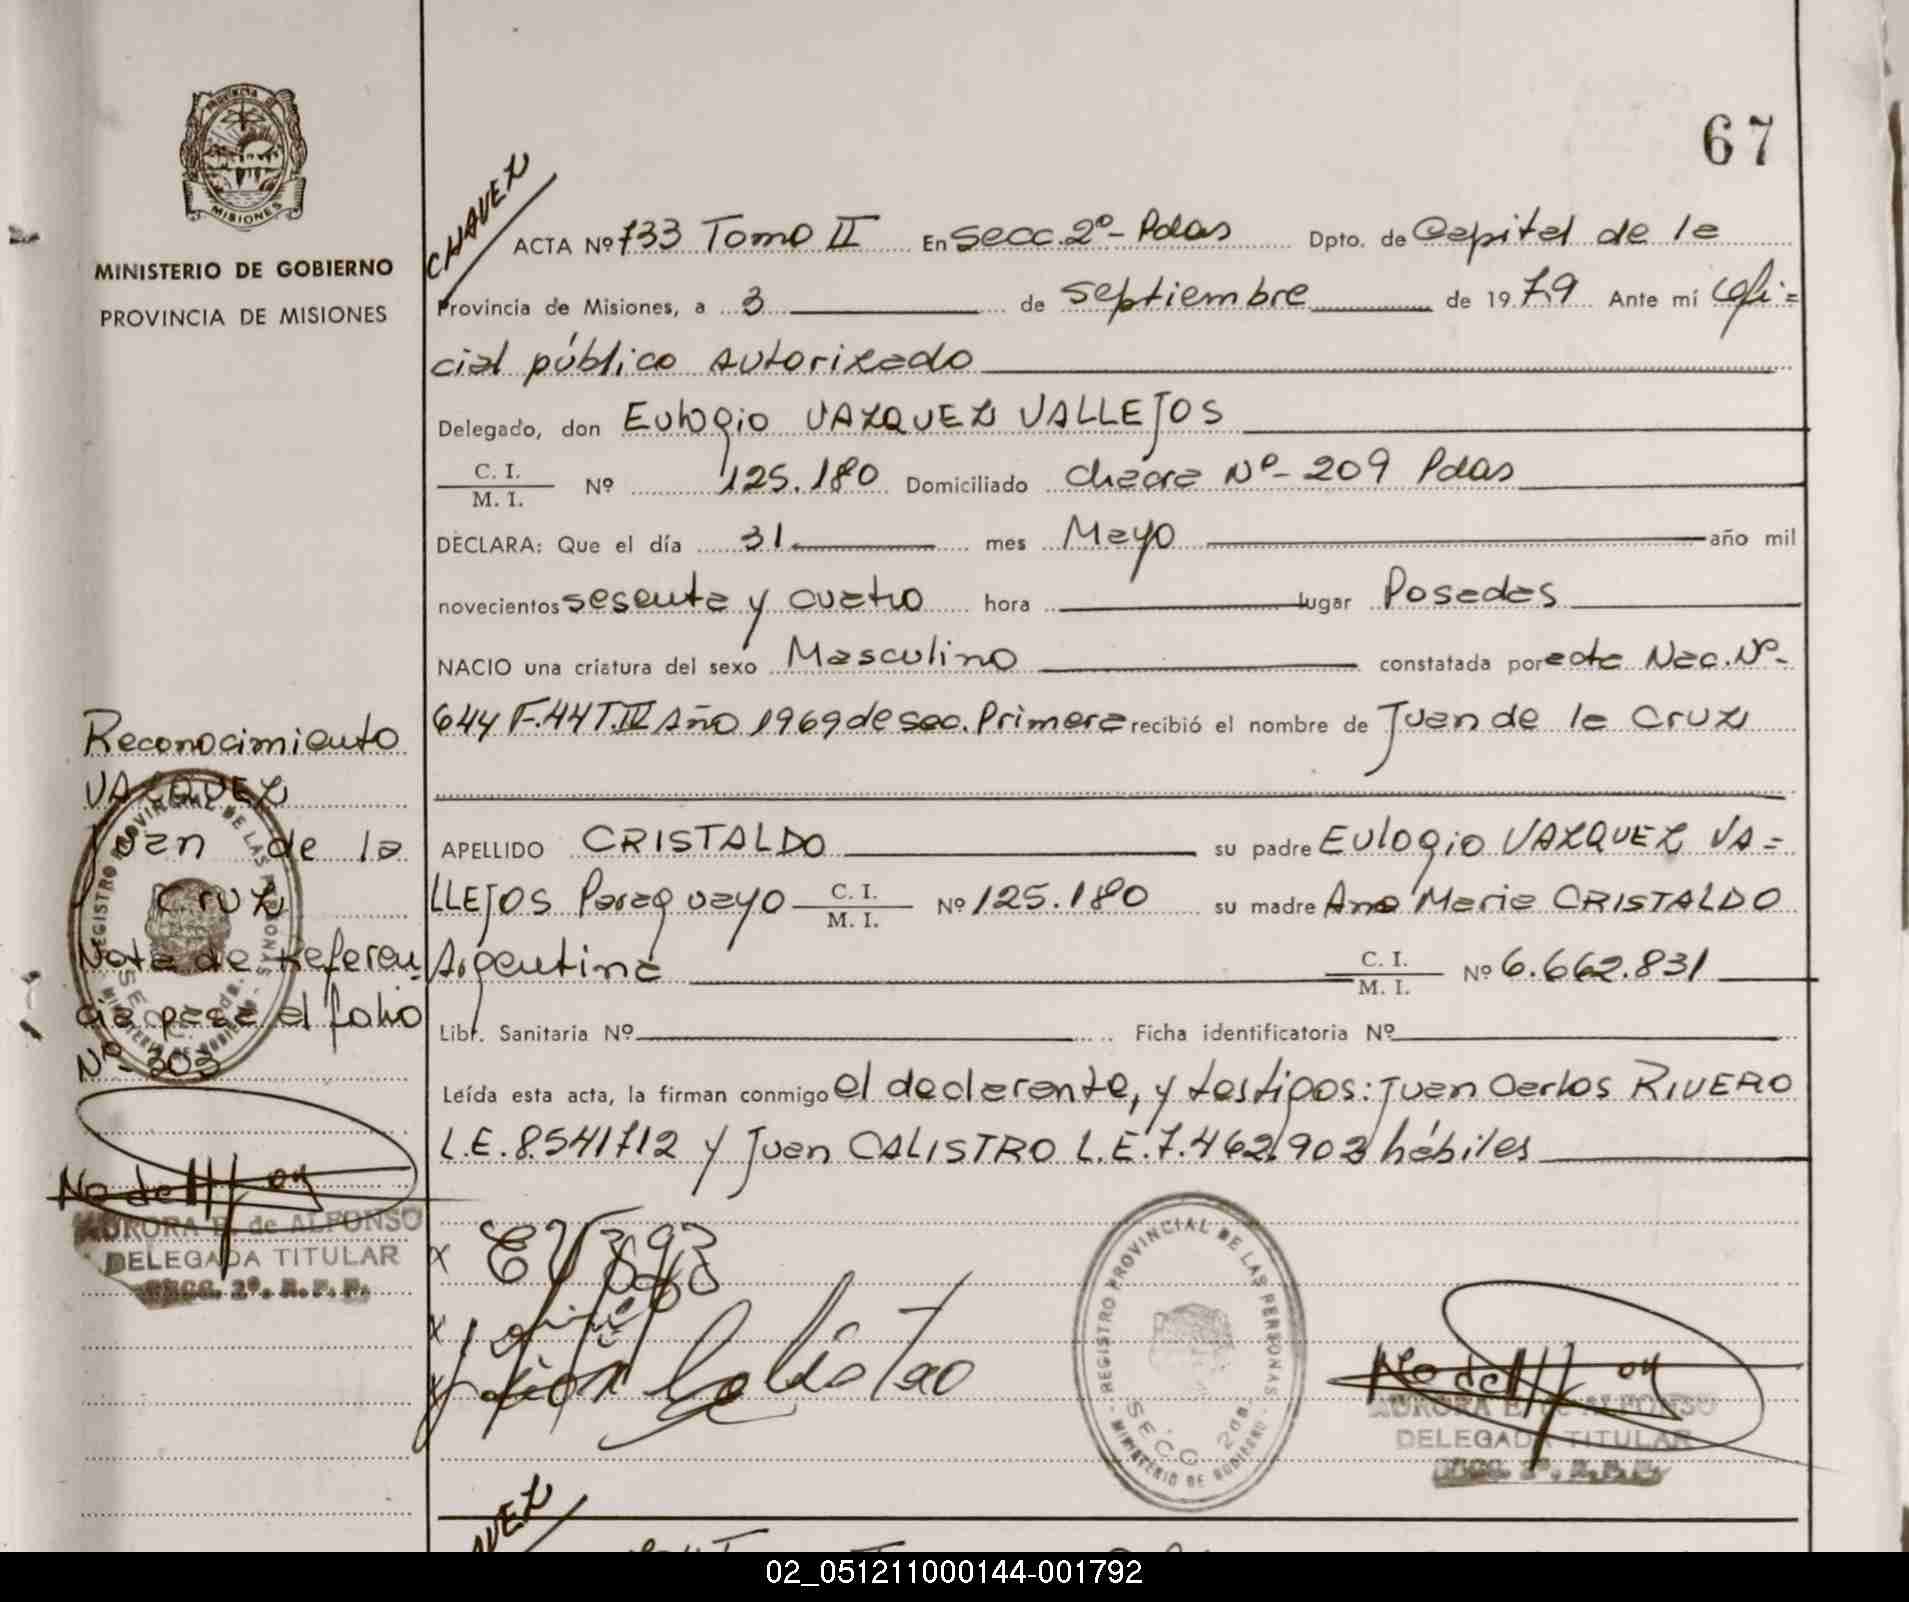 67
PROVINCIA DE
MISIONES
MINISTERIO DE GOBIERNO
PROVINCIA DE MISIONES
CHAVEZ
ACTA Nº 733 Tomo II En Secc. 2º- Pdas Dpto. de Capital de la
Provincia de Misiones, a 3 de Septiembre de 1979 Ante mí Ofi=
cial público autorizado
Delegado, don Eulogio VAZQUEZ VALLEJOS
C. I.
M. I. Nº 125.180 Domiciliado Chacra Nº- 209 Pdas
DECLARA: Que el día 31 mes Mayo año mil
novecientos sesenta y cuatro hora lugar Posadas
NACIO una criatura del sexo Masculino constatada por acta Nac. Nº-
644 F. 44 T. IV Año 1969 de sec. Primera recibió el nombre de Juan de la Cruz
APELLIDO CRISTALDO su padre Eulogio VAZQUEZ VA=
LLEJOS Paraguayo C. I. M. I. Nº 125.180 su madre Ana Maria CRISTALDO
Argentina C. I. M. I. Nº 6.662.831
Libr. Sanitaria Nº Ficha identificatoria Nº
Leída esta acta, la firman conmigo el declarante, y testigos: Juan Carlos RIVERO
L.E. 8541712 y Juan CALISTRO L.E. 7.462.903 hábiles
Reconocimiento
VAZQUEZ
Juan de la
Cruz
Nota de Referen
cia pasa al folio
Nº- 303
REGISTRO PROVINCIAL DE LAS PERSONAS
SECC. 2da.
MINISTERIO DE GOBIERNO
AURORA E. de ALFONSO
DELEGADA TITULAR
SECC. 2º. R.P.P.
x
x
x
REGISTRO PROVINCIAL DE LAS PERSONAS
SECC. 2da.
MINISTERIO DE GOBIERNO
AURORA E. de ALFONSO
DELEGADA TITULAR
SECC. 2º. R.P.P.
02_051211000144-001792